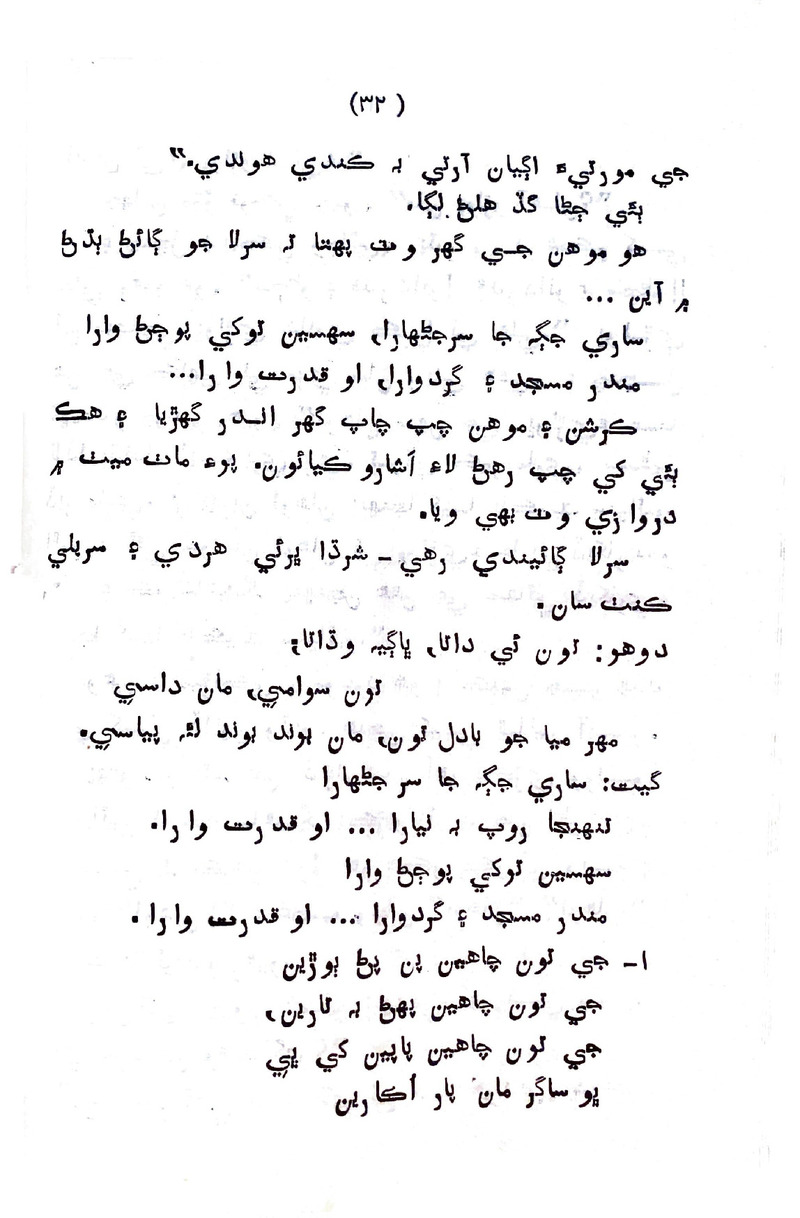 (٣٢)
جي مورتيءَ اڳيان آرتي بہ ڪندي هوندي.”
ٻئي ڄڻا گڏ هلڻ لڳا.
هو موهن جي گهر وٽ پهتا تہ سرلا جو ڳائڻ ٻڌڻ
۾ آين ...
ساري جڳہ جا سرجڻهارا، سهسين توکي پوڄڻ وارا
مندر مسجد ۽ گردوارا، او قدرت وارا...
ڪرشن ۽ موهن چپ چاپ گهر اندر گهڙيا ۽ هڪ
ٻئي کي چپ رهڻ لاءِ اَشارو ڪيائون. پوءِ مات ميٺ ۾
دروازي وٽ بهي ويا.
سرلا ڳائيندي رهي – شرڌا ڀرئي هردي ۽ سريلي
ڪنٺ سان.
دوهو: تون ئي داتا، ڀاڳيہ وڌاتا؛
تون سوامي، مان داسي
مهر ميا جو بادل تون، مان بوند بوند لئہ پياسي.
گيت: ساري جڳہ جا سرجڻهارا
تنهنجا روپ بہ نيارا ... او قدرت وارا.
سهسين توکي پوڄڻ وارا
مندر مسجد ۽ گردوارا ... او قدرت وارا .
١– جي تون چاهين پن پڻ ٻوڙين
جي تون چاهين پهڻ بہ تارين،
جي تون چاهين پاپين کي ڀي
ڀو ساگر مان پار اُڪارين